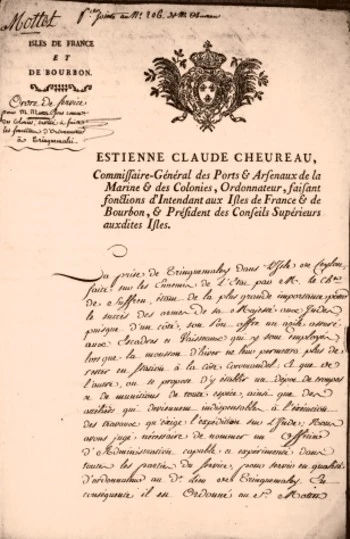 Mottet
Pce jointe au No. 206. de M Chevreau
ISLES DE FRANCE
ET
DE BOURBON.
Ordre de service
pour M. Mottet
des Colonies,
les fonctions d'Ordonnateur
à Trinquemalé.
ESTIENNE CLAUDE CHEUREAU,
Commissaire-Général des Ports & Arsenaux de la
Marine & des Colonies, Ordonnateur, faisant
fonctions d'Intendant aux Isles de France & de
Bourbon, & Président des Conseils Supérieurs
auxdites Isles.
La prise de Trinquemalay dans l'Isle de Ceylon
faite sur les Ennemis de l'Etat par M. le Cher
de Suffren, étant de la plus grande importance pour
le succès des armes de sa Majesté aux Indes
puisque d'un côté, son Port offre un azile assuré
aux Escadres et Vaisseaux qui y sont employés
lorsque la mousson d'hiver ne leur permettra plus de
rester en station à la côte Coromandel. Et que de
l'autre, on se propose d'y établir un dépôt de troupes
et de munitions de toute espèce, ainsi que des
atteliers qui deviennent indispensables à l'exécution
des travaux qu'exige l'expédition de l'Inde; Nous
avons jugé nécessaire de nommer un Officier
d'Administration capable et expérimenté dans
toutes les parties du service, pour servir en qualité
d'ordonnateur au dt. Lieu de Trinquemalay. En
conséquence il est Ordonné au Sr. Mottet